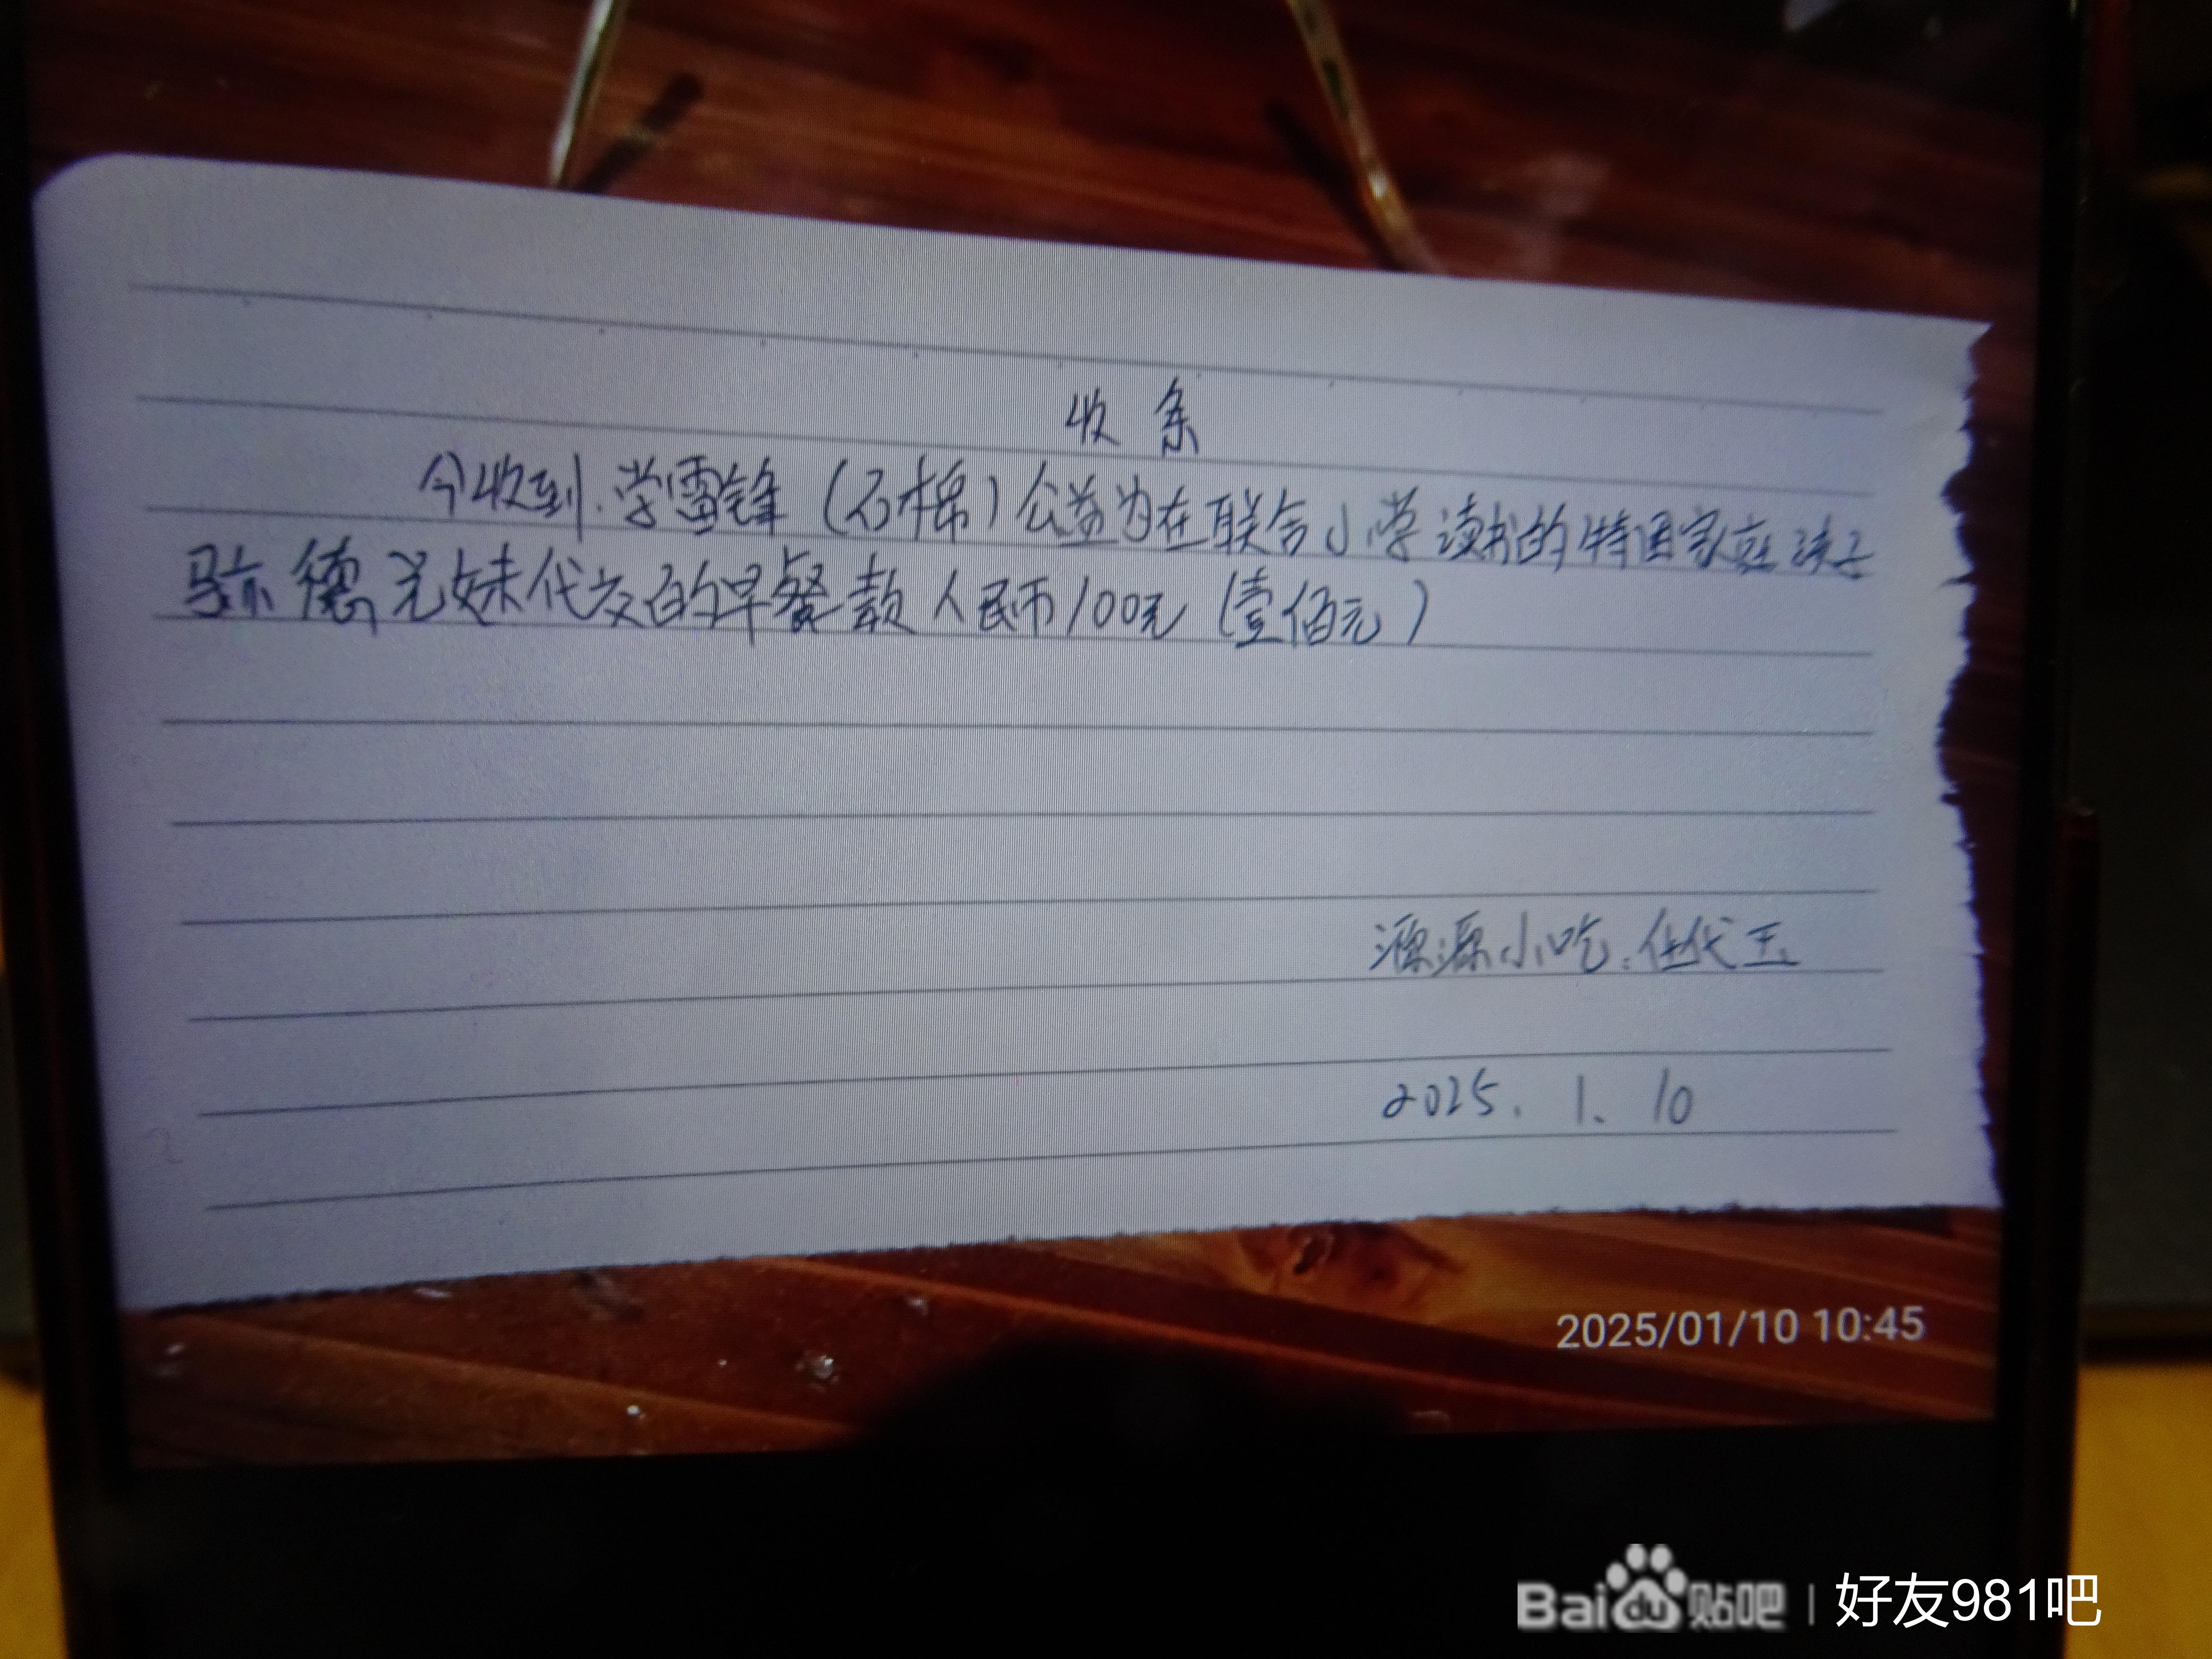 收条
今收到.学雷锋（石棉）公益为在联合小学读书的特困家庭孩子
骆德兄妹代交的早餐款人民币100元（壹佰元）
源源小吃:任代玉
2025.1.10
2025/01/10 10:45
Baidu贴吧 | 好友981吧